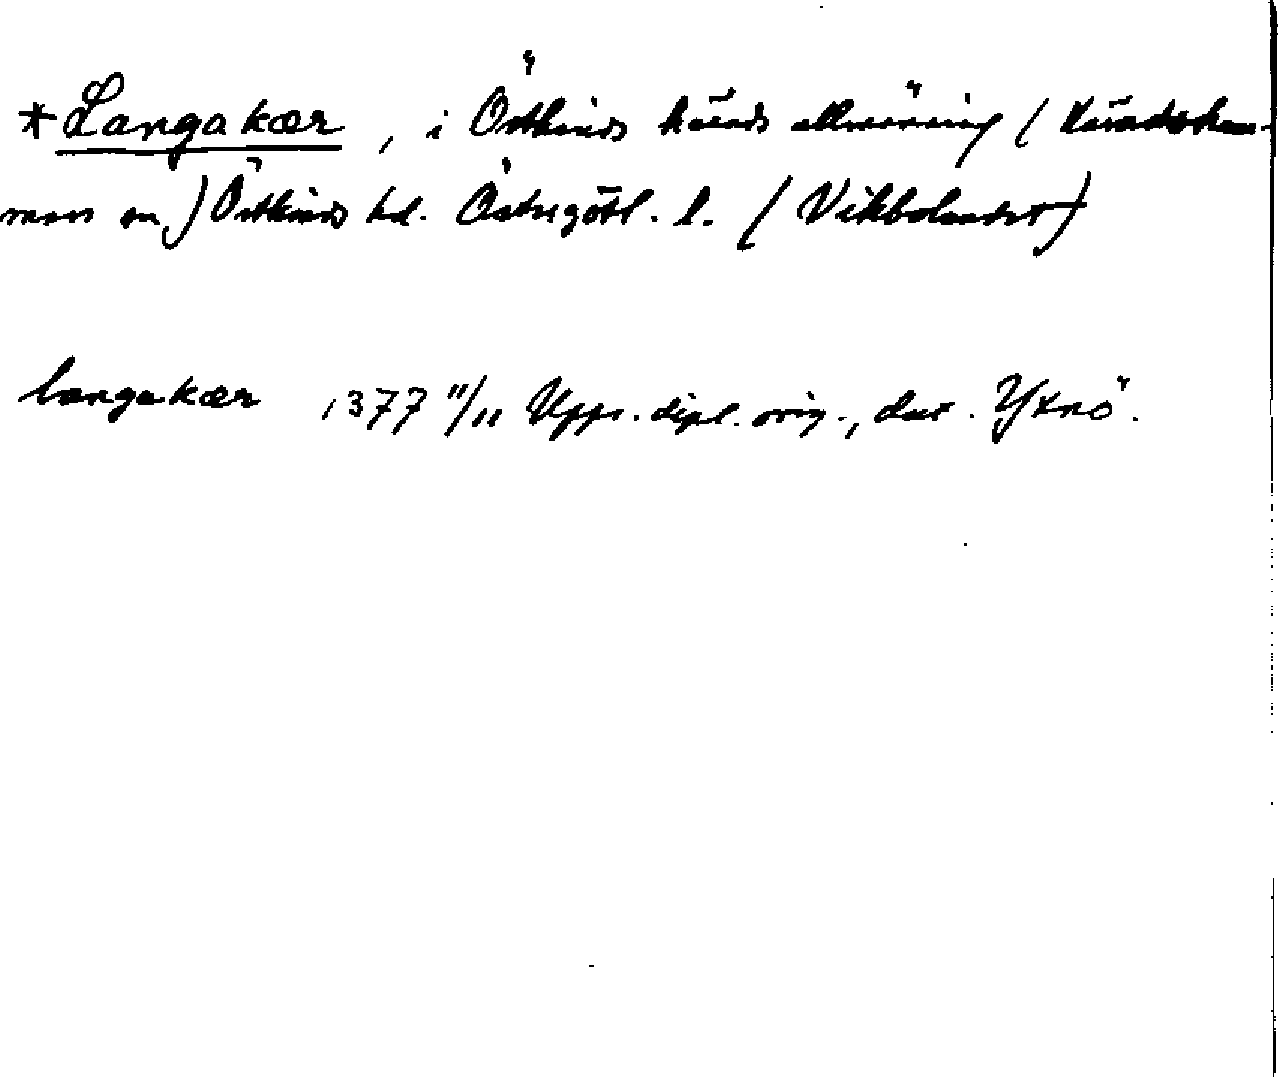 *Langakær, i Östkinds härads allmänning (Häradsham-
mars sn) Östkinds hd. Östergötl. l. (Vikbolandet)
langakær 1377 11/11 Upps. dipl. orig., dat. Yxnö.